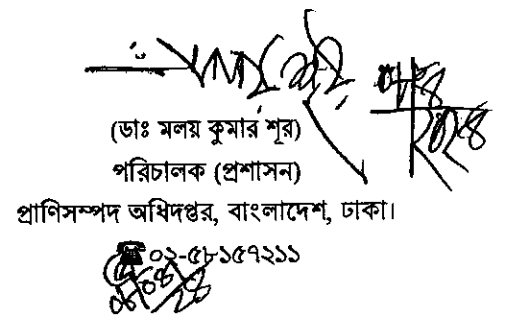 (ডাঃ মলয় কুমার শূর)
পরিচালক (প্রশাসন)
প্রাণিসম্পদ অধিদপ্তর, বাংলাদেশ, ঢাকা।
☎০২-৫৮১৫৭২১১